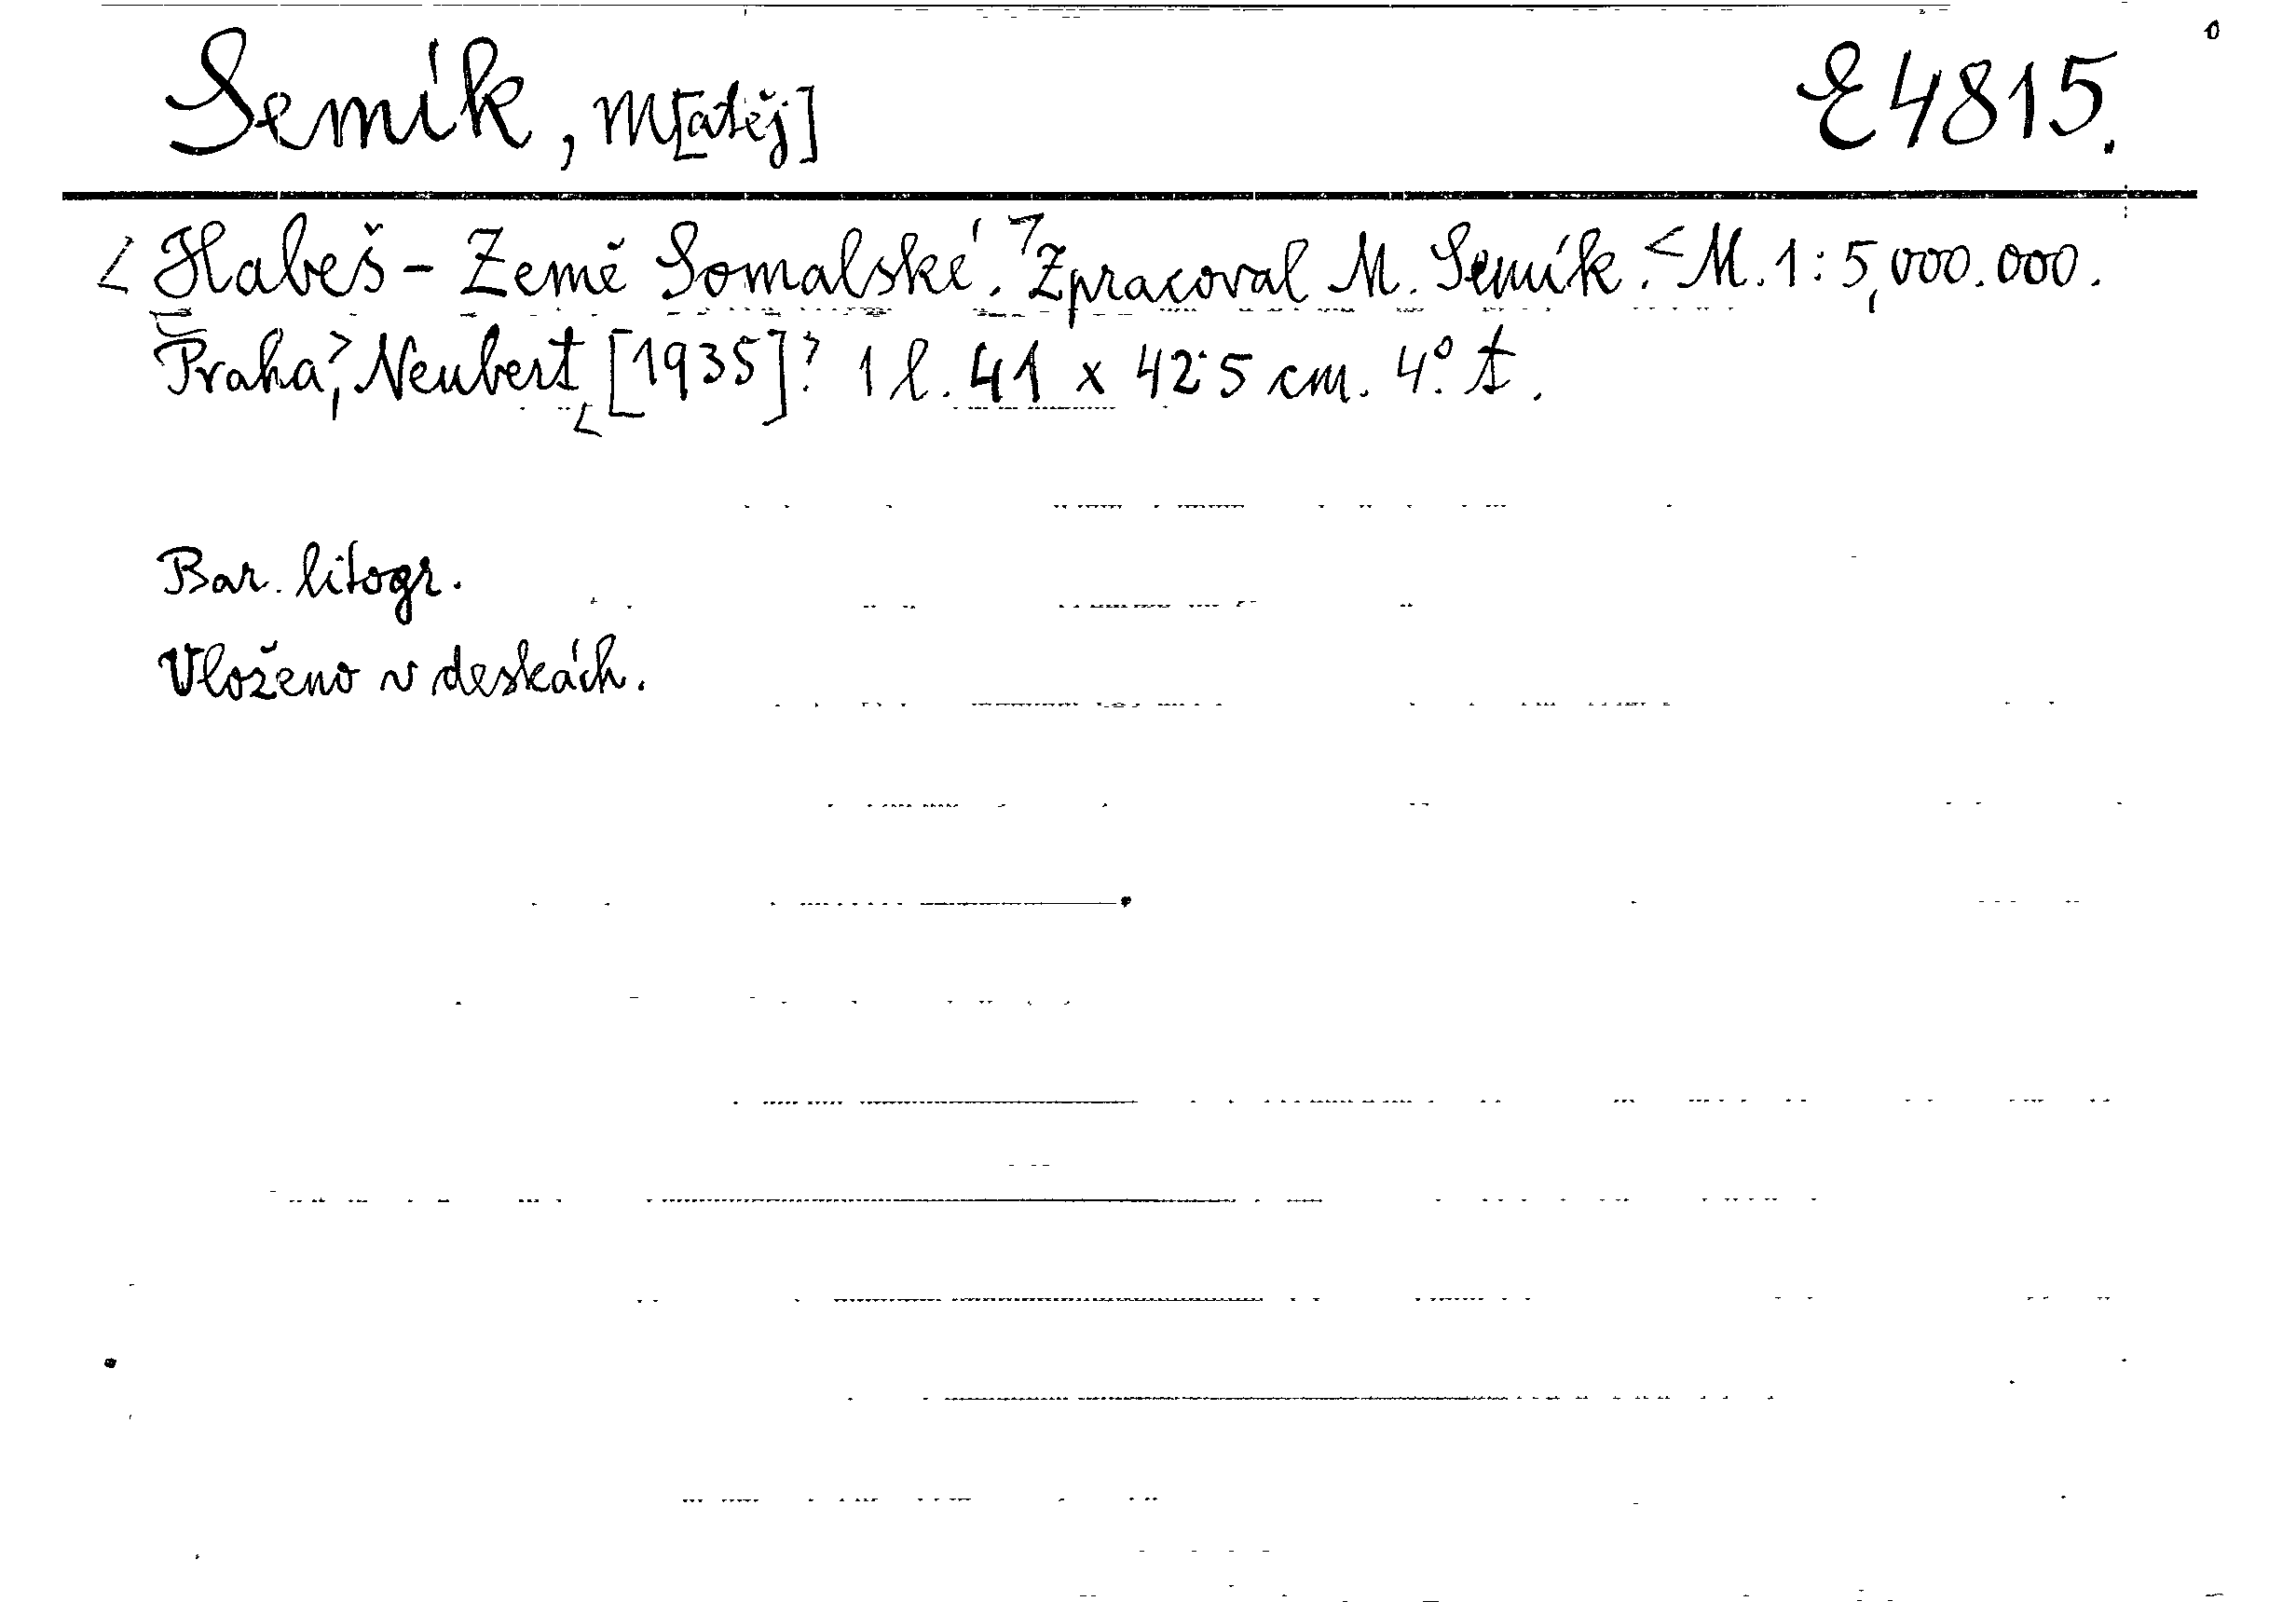 Semík, M[atěj] E 4815.
< Habeš - Země Somalské. > Zpracoval M. Semík. < M. 1 : 5,000.000.
Praha >, Neubert < [1935] > 1 l. 41 x 42·5 cm. 4°. t.
Bar. litogr.
Vloženo v deskách.